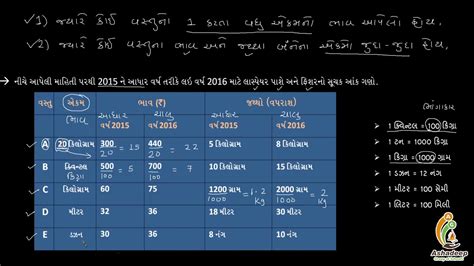 1) જ્યારે કોઈ વસ્તુના 1 કરતા વધુ એકમનો ભાવ આપેલો હોય,
2) જ્યારે કોઈ વસ્તુના ભાવ અને જથ્થા બંનેના એકમો જુદા-જુદા હોય,
→ નીચે આપેલી માહિતી પરથી 2015 ને આધાર વર્ષ તરીકે લઇ વર્ષ 2016 માટે લાસ્પેયર પાશે અને ફિશરનો સૂચક આંક ગણો.
વસ્તુ એકમ ભાવ (₹) જથ્થો (વપરાશ)
ભાવ આધાર વર્ષ 2015 ચાલુ વર્ષ 2016 આધાર વર્ષ 2015 ચાલુ વર્ષ 2016
A 20 કિલોગ્રામ 300/20 = 15 440/20 = 22 5 કિલોગ્રામ 8 કિલોગ્રામ
B ક્વિન્ટલ કિગ્રા 500/100 = 5 700/100 = 7 10 કિલોગ્રામ 15 કિલોગ્રામ
C કિલોગ્રામ 60 75 1200 ગ્રામ/1000 = 1.2 kg 2000 ગ્રામ/1000 = 2 kg
D મીટર 32 36 18 મીટર 30 મીટર
E ડઝન 30 36 8 નંગ 10 નંગ
ભાગાકાર
➢ 1 ક્વિન્ટલ = 100 કિગ્રા
➢ 1 ટન = 1000 કિગ્રા
➢ 1 કિગ્રા = 1000 ગ્રામ
➢ 1 ડઝન = 12 નંગ
➢ 1 મીટર = 100 સેમી
➢ 1 લિટર = 100 મિલી
Ashadeep